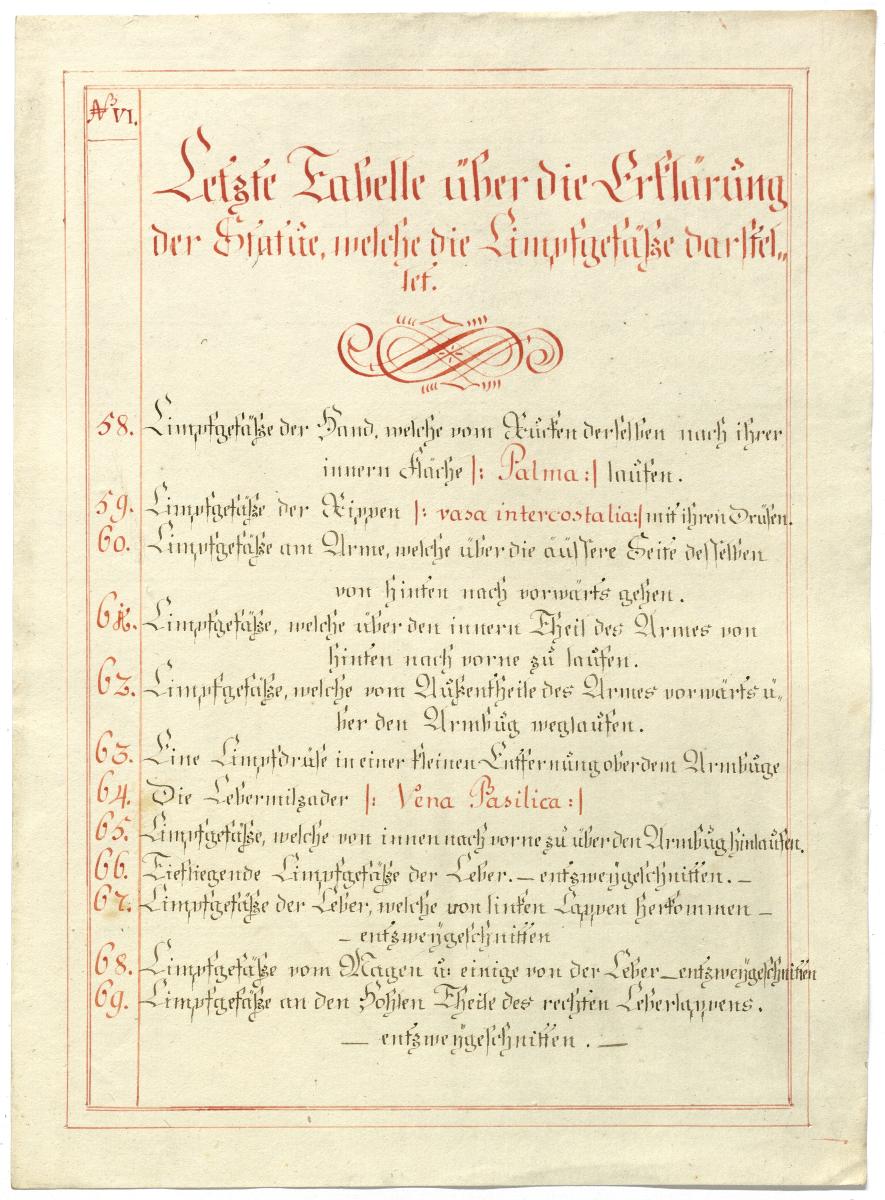 No VI.
Letzte Tabelle über die Erklärung
der Statue, welche die Limpfgefäße darstel„
let.
58. Limpfgefäße der Hand, welche vom Rucken derselben nach ihrer
innern Fläche |: Palma :| laufen.
59. Limpfgefäße der Rippen |: vasa intercostalia :| mit ihren Drüsen.
60. Limpfgefäße am Arme, welche über die äussere Seite desselben
von hinten nach vorwärts gehen.
61. Limpfgefäße, welche über den innern Theil des Armes von
hinten nach vorne zu laufen.
62. Limpfgefäße, welche vom Außentheile des Armes vorwärts ü„
ber den Armbug weglaufen.
63. Eine Limpfdrüse in einer kleinen Entfernung ober dem Armbuge
64. Die Lebermilzader |: Vena Basilica :|
65. Limpfgefäße, welche von innen nach vorne zu über den Armbug hinlaufen.
66. Tiefliegende Limpfgefäße der Leber. — entzweygeschnitten. —
67. Limpfgefäße der Leber, welche von linken Lappen herkommen —
— entzweygeschnitten
68. Limpfgefäße vom Magen u: einige von der Leber — entzweygeschnitten
69. Limpfgefäße an den Hohlen Theile des rechten Leberlappens.
— entzweygeschnitten. —